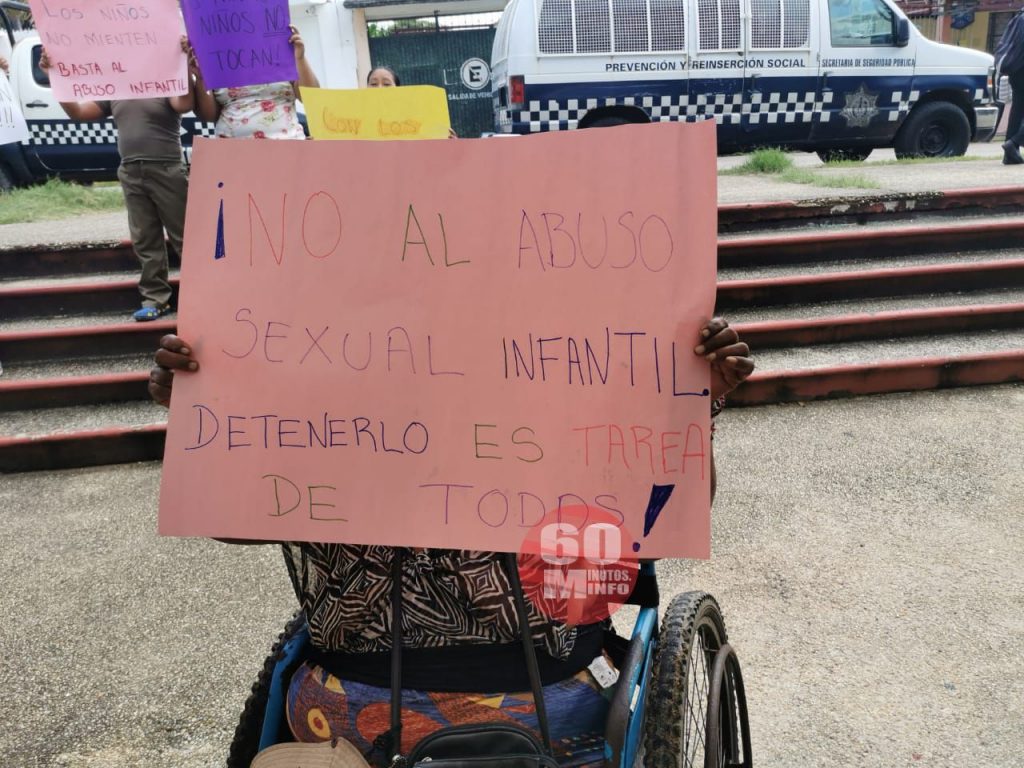 LOS NIÑOS
NO MIENTEN
BASTA AL
ABUSO INFANTIL
NIÑOS NO
TOCAN!
E
SALIDA DE
PREVENCIÓN Y REINSERCIÓN SOCIAL
SECRETARIA DE SEGURIDAD PÚBLICA
¡NO AL ABUSO
SEXUAL INFANTIL.
DETENERLO ES TAREA
DE TODOS!
60
MINUTOS.
INFO